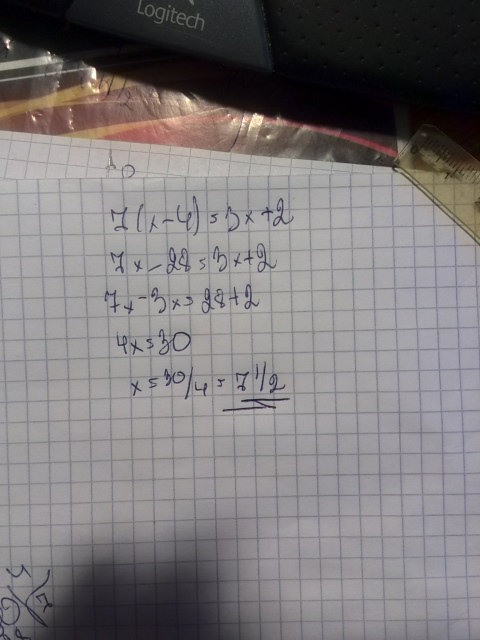 Logitech
7(x-4)=3x+2
7x-28=3x+2
7x-3x=28+2
4x=30
x=30/4=7 1/2